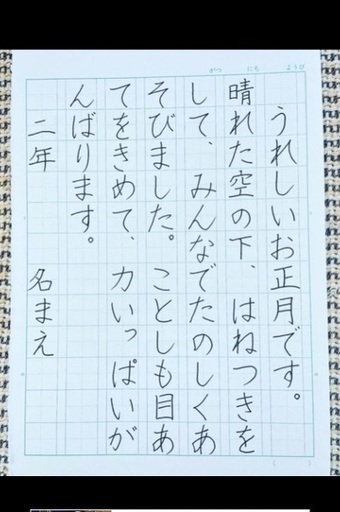 がつ にち ようび
うれしいお正月です。
晴れた空の下、はねつきを
して、みんなでたのしくあ
そびました。ことしも目あ
てをきめて、力いっぱいが
んばります。
二年 名まえ